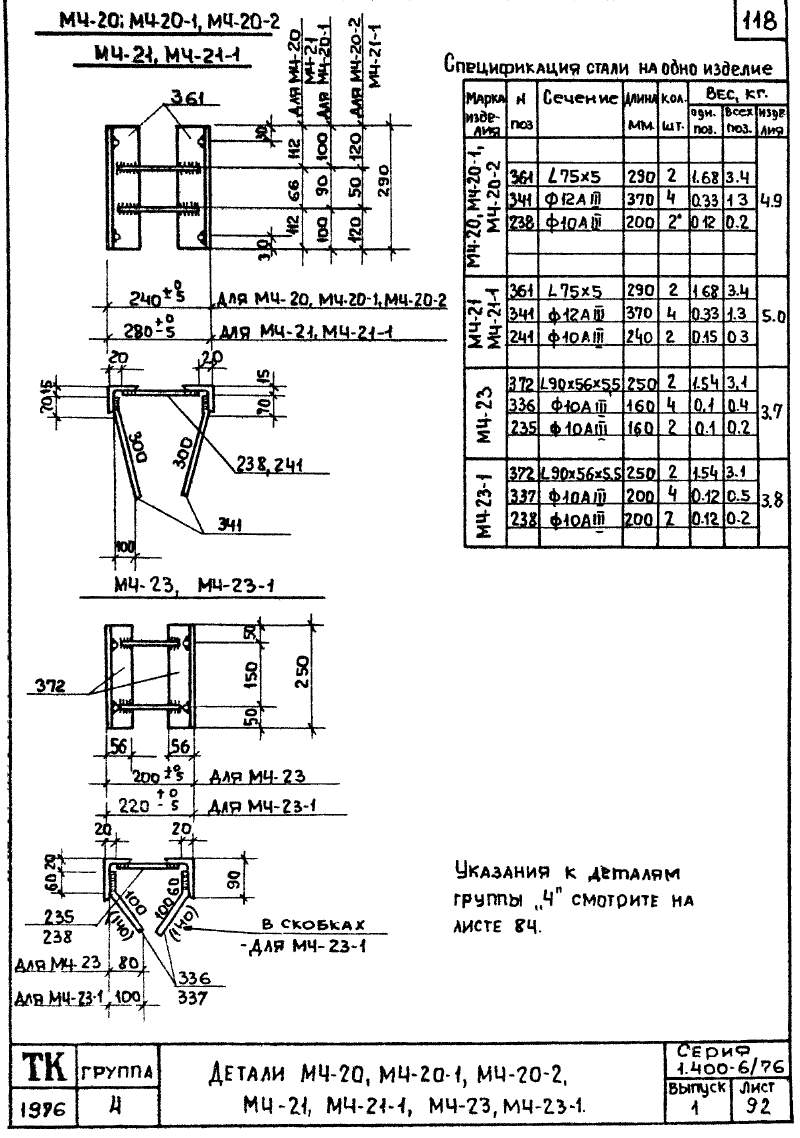 МЧ-20; МЧ-20-1, МЧ-20-2
МЧ-21, МЧ-21-1
118
для МЧ-20
МЧ-21
для МЧ-20-1
для МЧ-20-2
МЧ-21-1
361
30
112 100 120
66 90 50
290
112 100 120
30
240 +0 -5 для МЧ-20, МЧ-20-1, МЧ-20-2
280 +0 -5 для МЧ-21, МЧ-21-1
20 20
15 15
70 70
300 300
238, 241
341
100
МЧ-23, МЧ-23-1
50
150
250
50
372
56 56
200 +0 -5 для МЧ-23
220 +0 -5 для МЧ-23-1
20 20
20
60 60
90
100 100
(140) (140)
235
238
В скобках
-для МЧ-23-1
для МЧ-23 80
336
для МЧ-23-1 100
337
Спецификация стали на одно изделие
Марка изделия N поз Сечение Длина мм. кол. шт. Вес, кг.
одн. поз. Всех поз. изделия
МЧ-20, МЧ-20-1, МЧ-20-2
361 L75×5 290 2 1.68 3.4
341 Ф12АIII 370 4 0.33 1.3 4.9
238 Ф10АIII 200 2 0.12 0.2
МЧ-21 МЧ-21-1
361 L75×5 290 2 1.68 3.4
341 Ф12АIII 370 4 0.33 1.3 5.0
241 Ф10АIII 240 2 0.15 0.3
МЧ-23
372 L90×56×5,5 250 2 1.54 3.1
336 Ф10АIII 160 4 0.1 0.4 3.7
235 Ф10АIII 160 2 0.1 0.2
МЧ-23-1
372 L90×56×5,5 250 2 1.54 3.1
337 Ф10АIII 200 4 0.12 0.5 3.8
238 Ф10АIII 200 2 0.12 0.2
Указания к деталям
группы „4" смотрите на
листе 84.
ТК группа
1976 4
Детали МЧ-20, МЧ-20-1, МЧ-20-2,
МЧ-21, МЧ-21-1, МЧ-23, МЧ-23-1.
Серия
1.400-6/76
Выпуск Лист
1 92